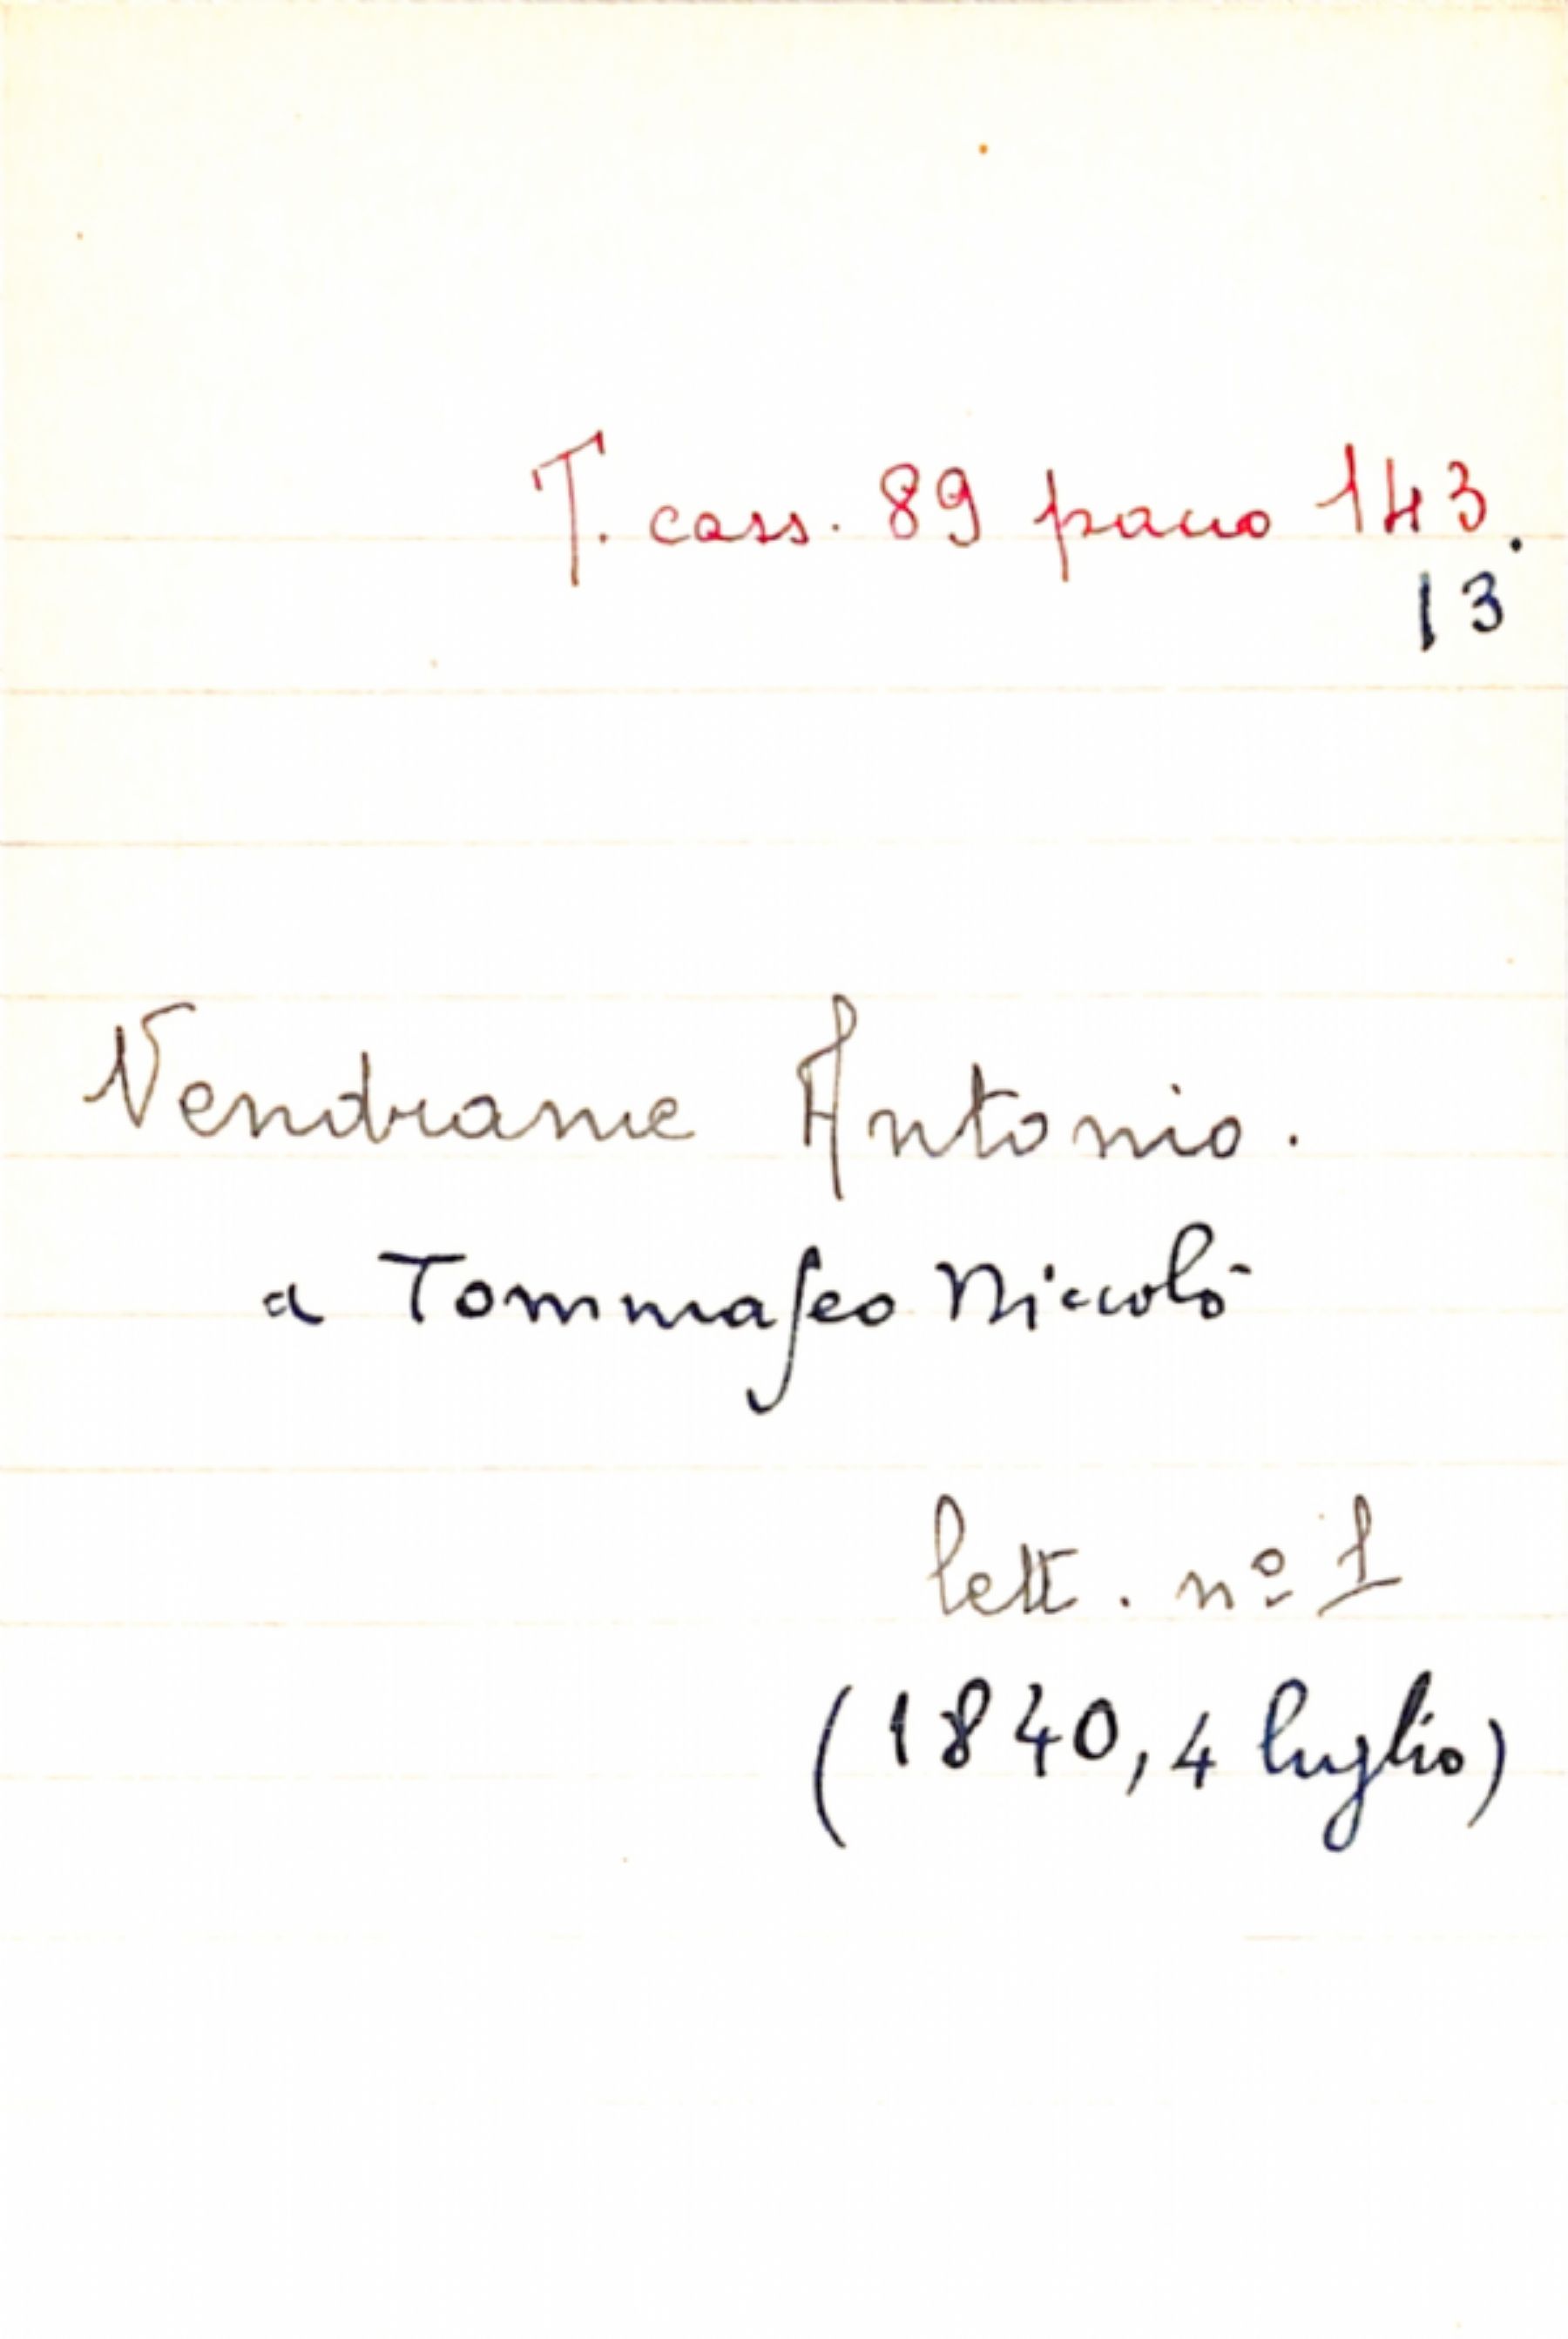 T. cass. 89 pacco 143.
13
Vendrame Antonio.
a Tommaseo Niccolò
lett. nº 1
(1840, 4 luglio)